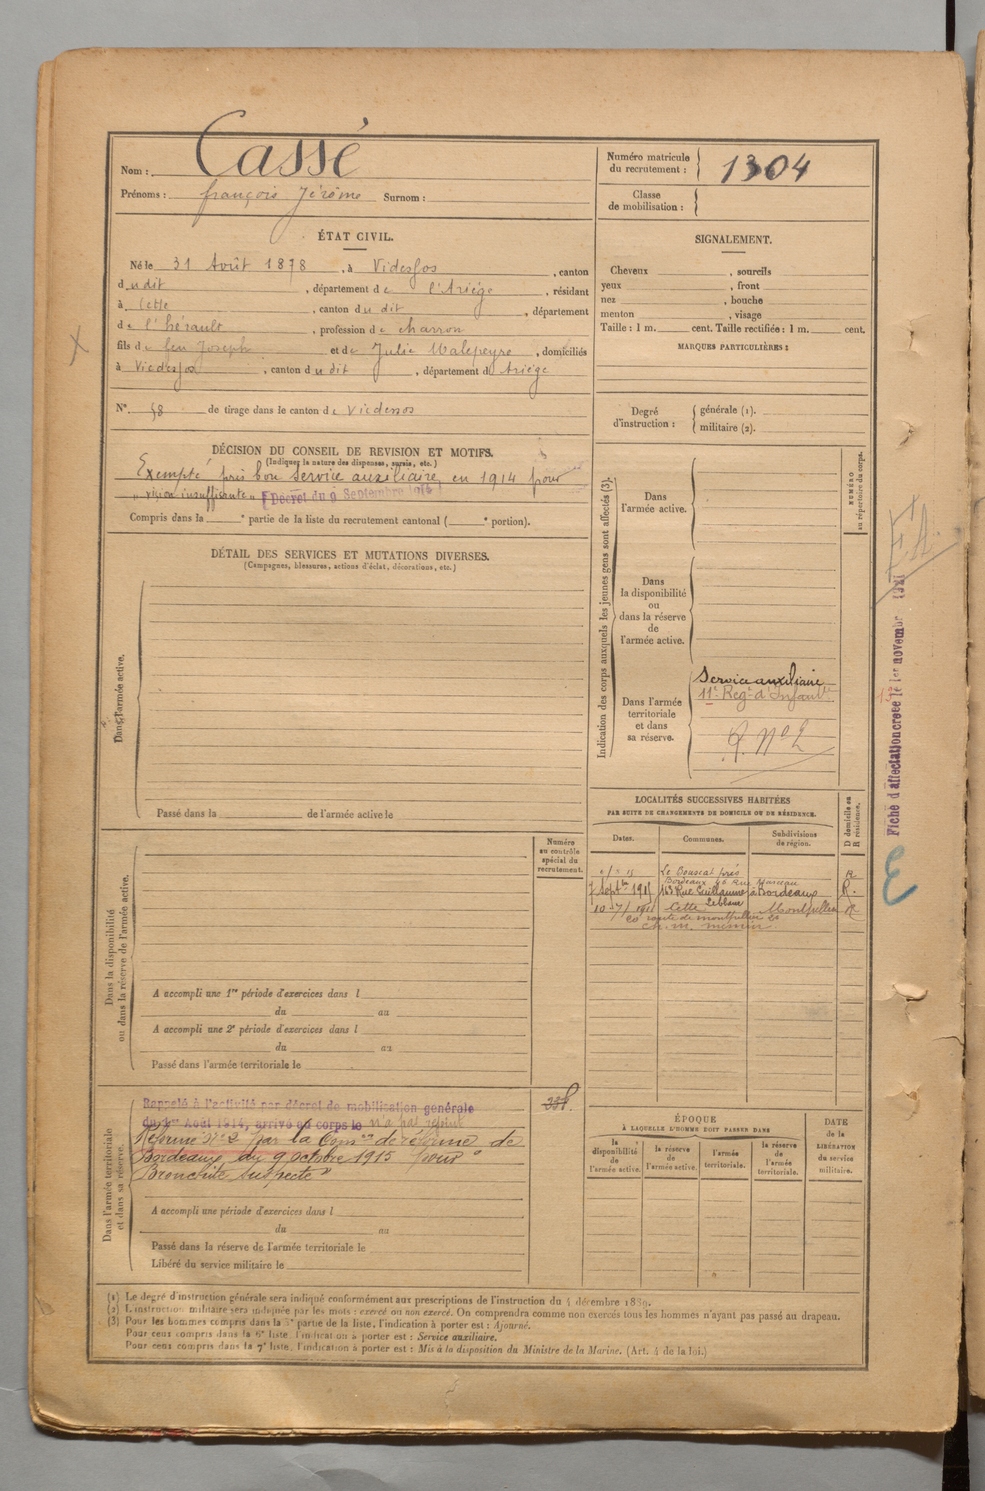 Nom : Cassé
Prénoms : françois Jérôme Surnom :
Numéro matricule
du recrutement : 1304
Classe
de mobilisation :
ÉTAT CIVIL.
Né le 31 Août 1878, à Vicdessos, canton
dudit, département de l'Ariège, résidant
à Cette, canton du dit, département
de l'hérault, profession de charron
fils de feu Joseph et de Julie Malepeyre, domiciliés
à Vicdessos, canton dudit, département d Ariège
N° 58 de tirage dans le canton de Vicdessos
SIGNALEMENT.
Cheveux , sourcils
yeux , front
nez , bouche
menton , visage
Taille : 1 m. cent. Taille rectifiée : 1 m. cent.
MARQUES PARTICULIÈRES :
Degré
d'instruction :
générale (1).
militaire (2).
DÉCISION DU CONSEIL DE REVISION ET MOTIFS.
(Indiquer la nature des dispenses, sursis, etc.)
Exempté pris bon Service auxiliaire, en 1914 pour
"vision insuffisante" [Décret du 9 Septembre 1914]
Compris dans la e partie de la liste du recrutement cantonal ( e portion).
DÉTAIL DES SERVICES ET MUTATIONS DIVERSES.
(Campagnes, blessures, actions d'éclat, décorations, etc.)
Dans l'armée active.
Passé dans la de l'armée active le
Indication des corps auxquels les jeunes gens sont affectés (3).
NUMÉRO
au répertoire du corps.
Dans
l'armée active.
Dans
la disponibilité
ou
dans la réserve
de
l'armée active.
Dans l'armée
territoriale
et dans
sa réserve.
Service auxiliaire
11e Regt d'Infant
R. N° 2
F.A.
Fiche d'affectation créée le 1er novembre
E
LOCALITÉS SUCCESSIVES HABITÉES
PAR SUITE DE CHANGEMENTS DE DOMICILE OU DE RÉSIDENCE.
D domicile ou
R résidence.
Dates. Communes. Subdivisions
de région.
Le Bouscat près R
Bordeaux 46 Rue Marceau
7 Septbre 1915 163 Rue Guillaume à Bordeaux R.
Leblanc
10-7/ Cette Montpellier R
20 route de montpellier 20
ch. m.
Numéro
au contrôle
spécial du
recrutement.
Dans la disponibilité
ou dans la réserve de l'armée active.
A accompli une 1re période d'exercices dans l
du au
A accompli une 2e période d'exercices dans l
du au
Passé dans l'armée territoriale le
Dans l'armée territoriale
et dans sa réserve.
Rappelé à l'activité par décret de mobilisation générale
du 1er Août 1914, arrivé au corps le n'a pas rejoint
Réformé N° 2 par la Comon de réforme de
Bordeaux du 9 octobre 1915 pour "
Bronchite suspecte"
A accompli une période d'exercices dans l
du au
Passé dans la réserve de l'armée territoriale le
Libéré du service militaire le
ÉPOQUE
À LAQUELLE L'HOMME DOIT PASSER DANS
DATE
de la
LIBÉRATION
du service
militaire.
la
disponibilité
de
l'armée active.
la réserve
de
l'armée active.
l'armée
territoriale.
la réserve
de
l'armée
territoriale.
(1) Le degré d'instruction générale sera indiqué conformément aux prescriptions de l'instruction du 4 décembre 1889.
(2) L'instruction militaire sera indiquée par les mots : exercé ou non exercé. On comprendra comme non exercés tous les hommes n'ayant pas passé au drapeau.
(3) Pour les hommes compris dans la 5e partie de la liste, l'indication à porter est : Ajourné.
Pour ceux compris dans la 6e liste, l'indication à porter est : Service auxiliaire.
Pour ceux compris dans la 7e liste, l'indication à porter est : Mis à la disposition du Ministre de la Marine. (Art. 4 de la loi.)